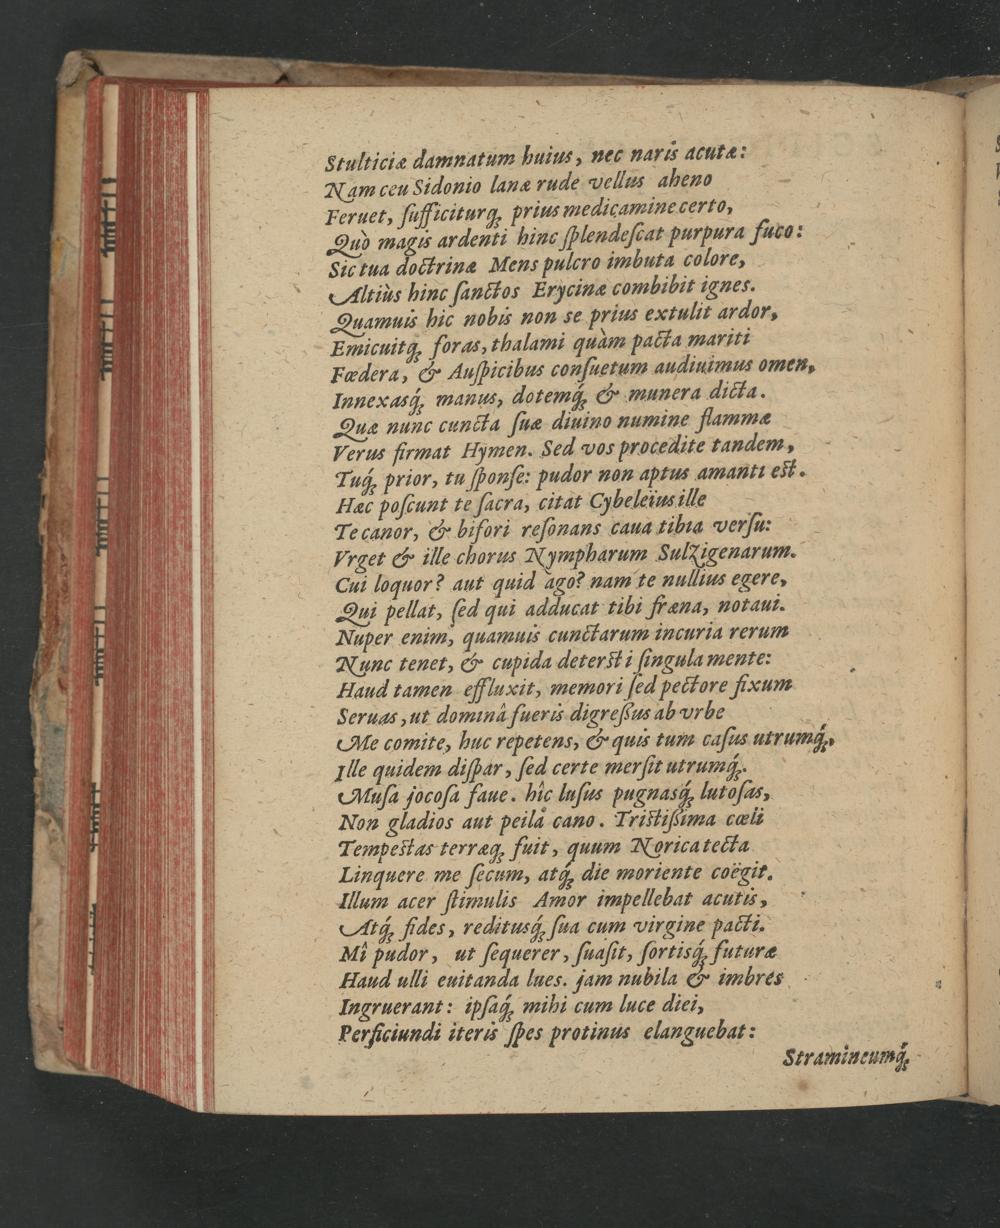 Stulticiæ damnatum huius, nec naris acutæ:
Nam ceu Sidonio lanæ rude vellus aheno
Feruet, ſufficiturq́ꝫ prius medicamine certo,
Quò magis ardenti hinc ſplendeſcat purpura fuco:
Sic tua doctrinæ Mens pulcro imbuta colore,
Altiùs hinc ſanctos Erycinæ combibit ignes.
Quamuis hic nobis non se prius extulit ardor,
Emicuitq́ꝫ foras, thalami quàm pacta mariti
Fœdera, & Auſpicibus conſuetum audiuimus omen,
Innexasq́ꝫ manus, dotemq́ꝫ & munera dicta.
Quæ nunc cuncta ſuæ diuino numine flammæ
Verus firmat Hymen. Sed vos procedite tandem,
Tuq́ꝫ prior, tu ſponſe: pudor non aptus amanti est.
Hæc poſcunt te ſacra, citat Cybeleïus ille
Te canor, & bifori reſonans caua tibia verſu:
Vrget & ille chorus Nympharum Sulzigenarum.
Cui loquor? aut quid ago? nam te nullius egere,
Qui pellat, ſed qui adducat tibi fræna, notaui.
Nuper enim, quamuis cunctarum incuria rerum
Nunc tenet, & cupida detersti ſingula mente:
Haud tamen effluxit, memori ſed pectore fixum
Seruas, ut dominâ fueris digreßus ab vrbe
Me comite, huc repetens, & quis tum caſus utrumq́ꝫ,
Ille quidem diſpar, ſed certe merſit utrumq́ꝫ.
Muſa jocoſa faue. hîc luſus pugnasq́ꝫ lutoſas,
Non gladios aut peila cano. Tristißima cœli
Tempestas terræq́ꝫ fuit, quum Norica tecta
Linquere me ſecum, atq́ꝫ die moriente coëgit.
Illum acer ſtimulis Amor impellebat acutis,
Atq́ꝫ fides, reditusq́ꝫ ſua cum virgine pacti.
Mî pudor, ut ſequerer, ſuaſit, ſortisq́ꝫ futuræ
Haud ulli euitanda lues. jam nubila & imbres
Ingruerant: ipſaq́ꝫ mihi cum luce diei,
Perficiundi iteris ſpes protinus elanguebat:
Stramineumq́ꝫ